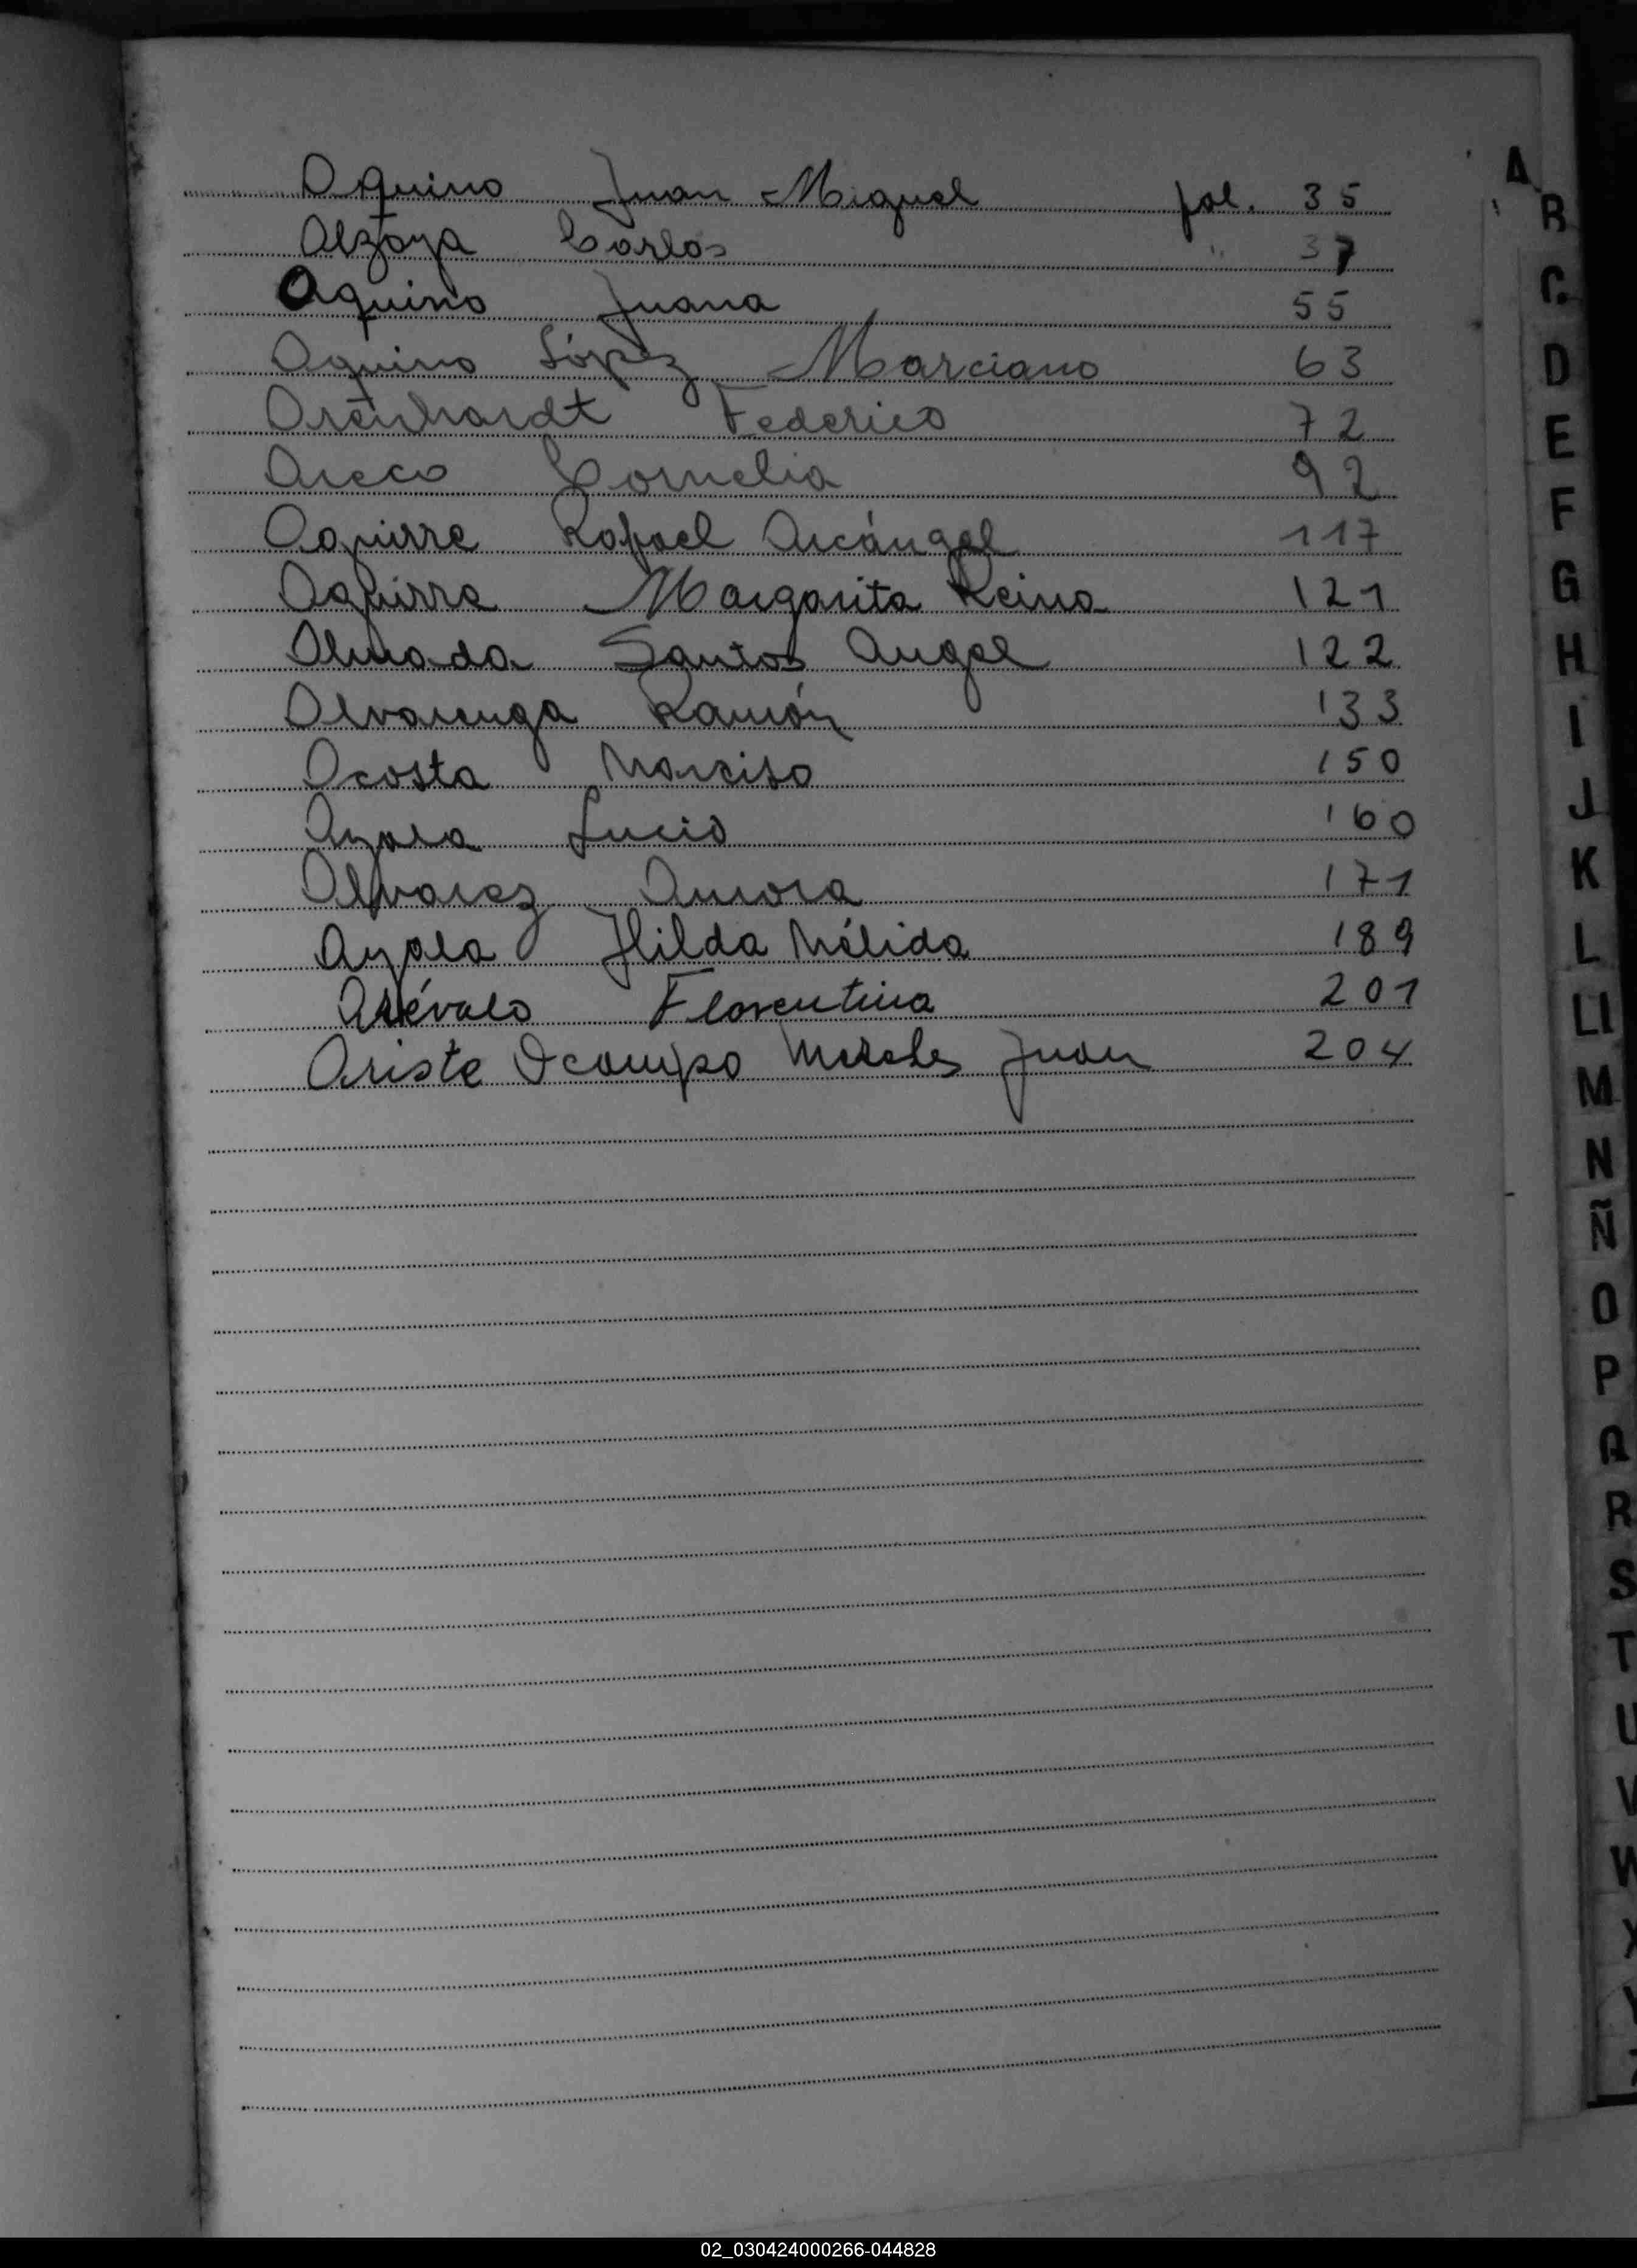 Aquino Juan Miguel fol. 35
Alzaya Carlos " 37
Aquino Juana 55
Aquino López Marciano 63
Arenhardt Federico 72
Areco Cornelia 92
Aguirre Rafael Arcángel 117
Aguirre Margarita Reina 121
Almada Santos Angel 122
Alvarenga Ramón 133
Acosta Narciso 150
Ayala Lucio 160
Alvarez Aurora 171
Ayala Hilda Nélida 189
Arévalo Florentina 201
Ariste Ocampo Juan 204
A
B
C
D
E
F
G
H
I
J
K
L
Ll
M
N
Ñ
O
P
Q
R
S
T
U
V
W
X
Y
Z
02_030424000266-044828